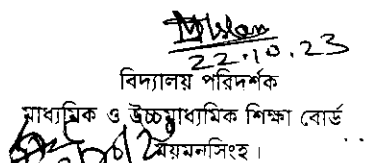 22.10.23
বিদ্যালয় পরিদর্শক
মাধ্যমিক ও উচ্চমাধ্যমিক শিক্ষা বোর্ড
ময়মনসিংহ।